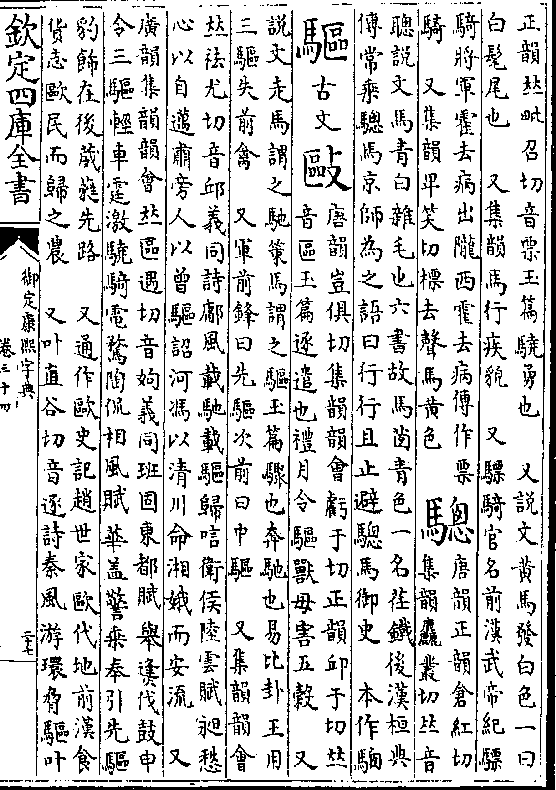 正韻𠀤毗召切音票玉篇驍勇也　又說文黃馬發白色一曰
白髦尾也　又集韻馬行疾貌　又驃騎官名前漢武帝紀驃
騎將軍霍去病出隴西霍去病傳作票
騎　又集韻畢笑切標去聲馬黃色
驄唐韻正韻倉紅切
集韻麤叢切𠀤音
聰說文馬青白雜毛也六書故馬蔥青色一名荏鐵後漢桓典
傳常乘驄馬京師為之語曰行行且止避驄馬御史　本作騘
驅古文敺唐韻豈俱切集韻韻會虧于切正韻邱于切𠀤
音區玉篇逐遣也禮月令驅獸毋害五穀　又
說文走馬謂之馳策馬謂之驅玉篇驟也奔馳也易比卦王用
三驅失前禽　又軍前鋒曰先驅次前曰中驅　又集韻韻會
𠀤袪尤切音邱義同詩鄘風載馳載驅歸唁衛侯陸雲賦昶愁
心以自邁肅旁人以曾驅詔河馮以清川命湘娥而安流　又
廣韻集韻韻會𠀤區遇切音姁義同班固東都賦舉燧伐鼓申
令三驅輕車霆激驍騎電騖陶侃相風賦華蓋警乘奉引先驅
豹飾在後葳蕤先路　又通作歐史記趙世家歐代地前漢食
貨志歐民而歸之農　又叶直谷切音逐詩秦風游環脅驅叶
欽定四庫全書
御定康熙字典
卷三十四
三七